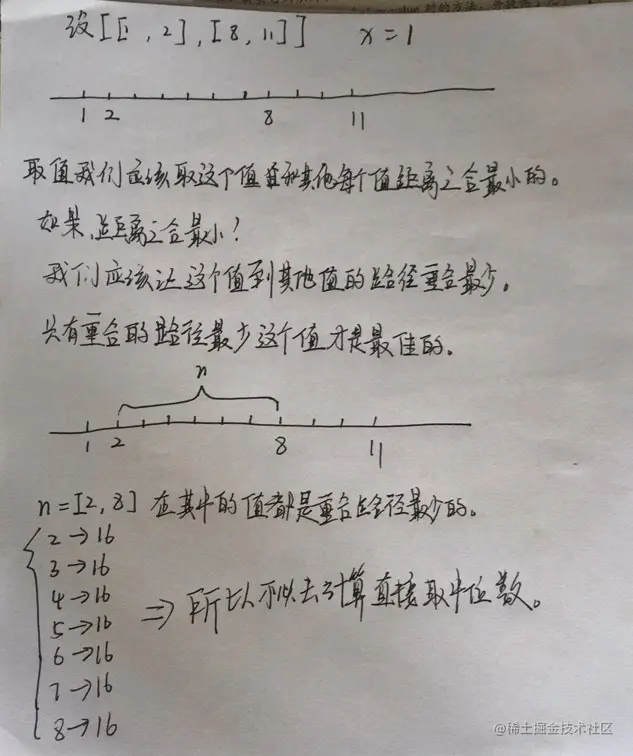 设[[1,2],[8,11]] x=1
1 2 8 11
取值我们应该取这个值并和其他每个值距离之合最小的。
如果,总距离之合最小?
我们应该让这个值到其他值的路径重合最少。
只有重合的路径最少这个值才是最佳的。
n
1 2 8 11
n=[2,8] 在其中的值都是重合路径最少的。
2→16
3→16
4→16
5→16
6→16
7→16
8→16
⇒ 所以不必去计算直接取中位数。
@稀土掘金技术社区